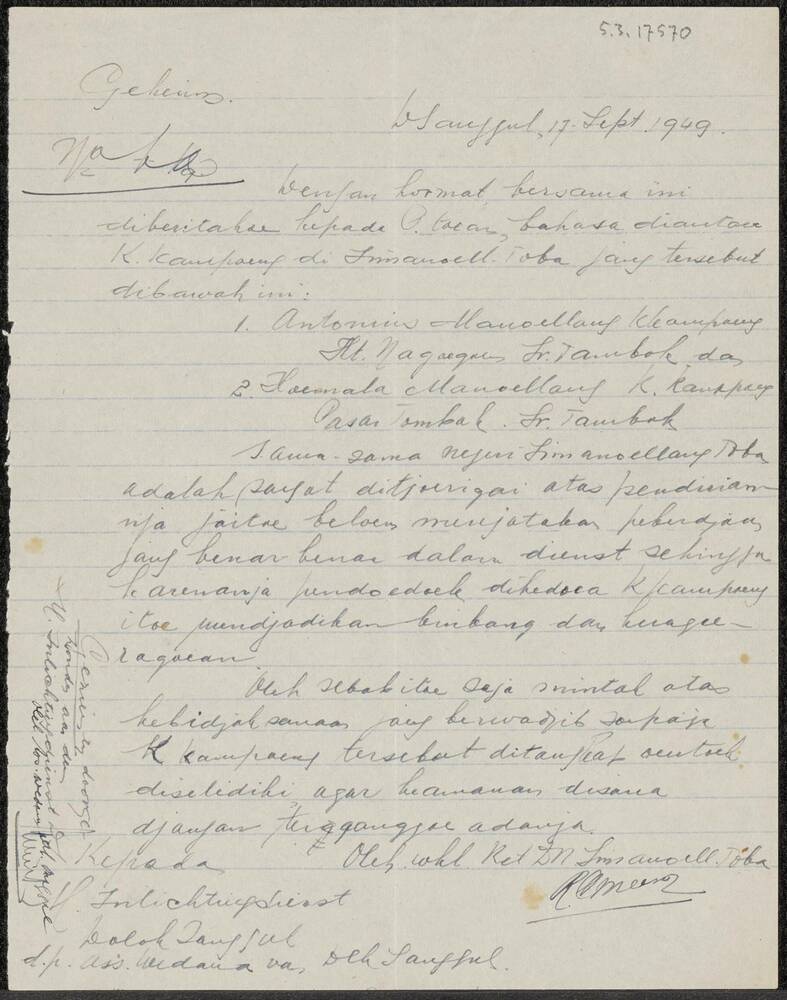 5.3.17570
Geheim.
DSanggul, 17 Sept. 1949.
No
Dengan hormat, bersama ini
diberitahoe kepada P. toean, bahasa diantara
K. Kampoeng di Simanoell. Toba jang tersebut
dibawah ini:
1. Antonius Manoellang K Kampoeng
Ht. Nagoegoen Sr. Tambok dan
2. Hoemala Manoellang K. Kampoeng
Pasar Tombak. Sr. Tambok
Sama-sama negeri Simanoellang Toba
adalah sangat ditjoerigai atas pendirian-
nja jaitoe beloem menjatakan pekerdjaan
jang benar benar dalam dienst sehingga
karenanja pendoedoek dikedoea K kampoeng
itoe mendjadikan bimbang dan keragoe-
ragoean.
Oleh sebab itoe saja mintak atas
kebidjaksanaan jang berwadjib soepaja
K kampoeng tersebut ditangkap oentoek
diselidiki agar keamanan disana
djangan terganggoe adanja.
Kepada
Oleh whl. Ket DN Simanoell. Toba
H. Inlichtingdienst
Dolok Sanggul
d.p. Ass. Wedana van Dlk Sanggul.
Gezien en doorge-
zonden aan den
H. Inlichtingdienst